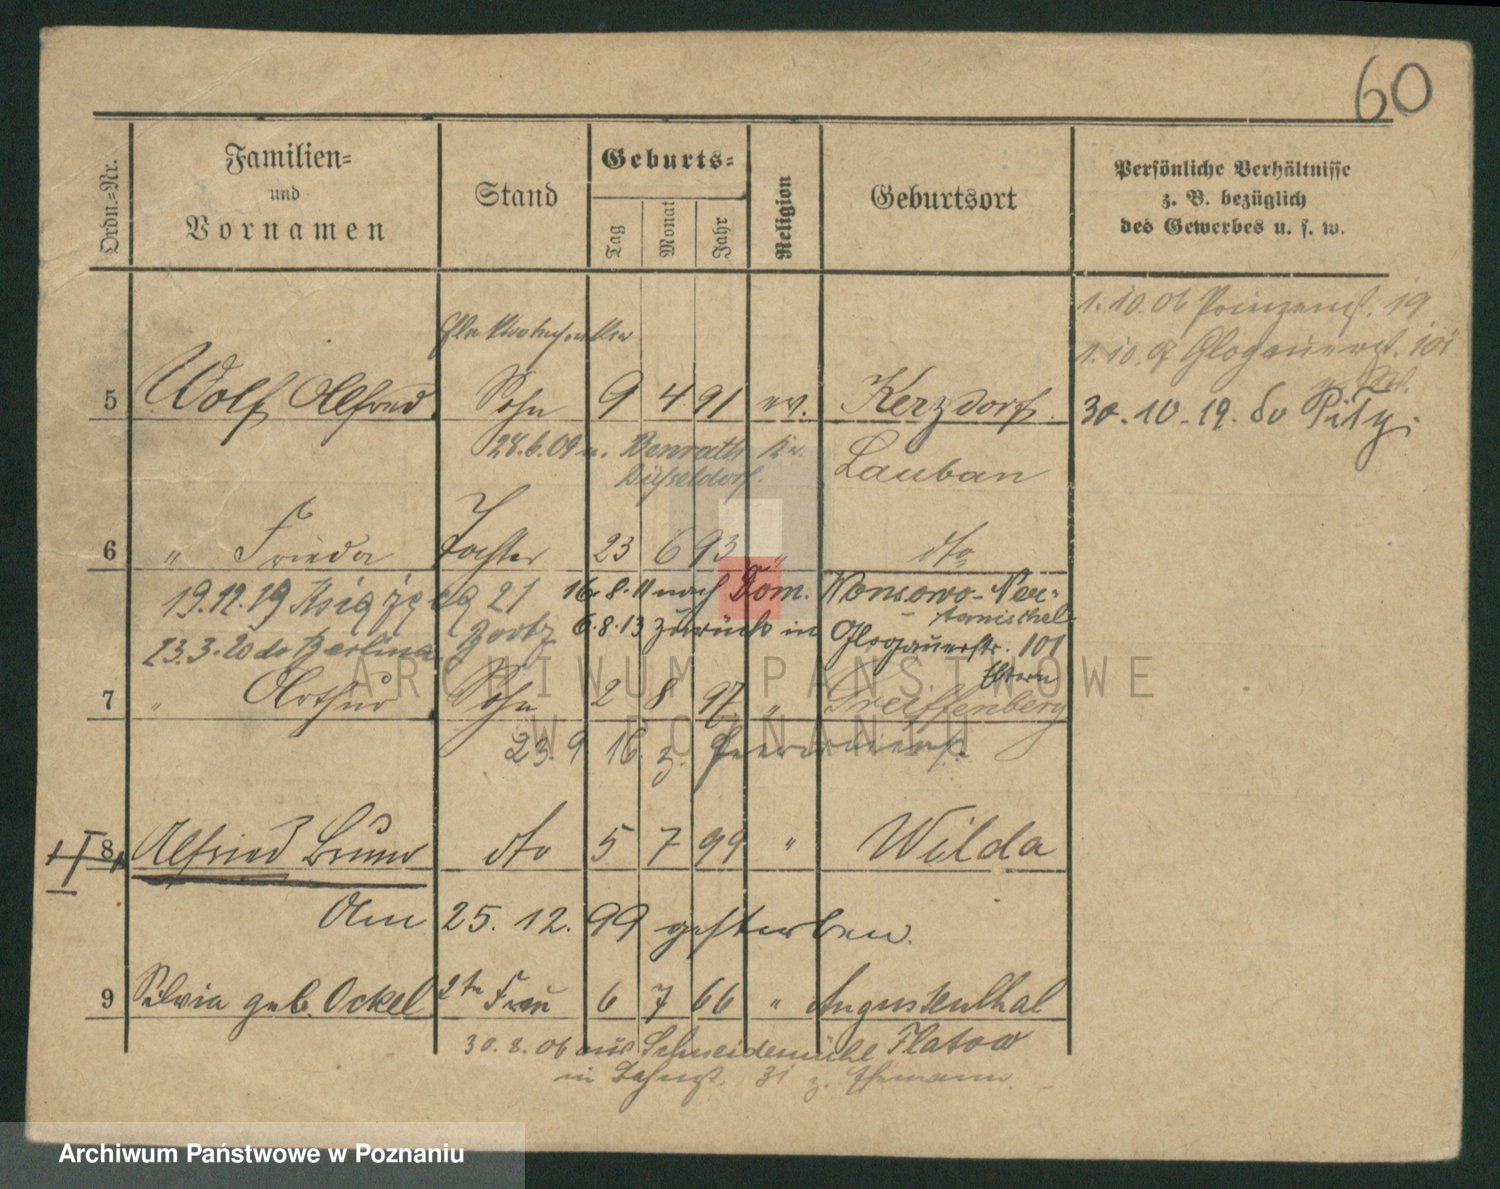 60
Ordn.=Nr.
Familien=
und
Vornamen
Stand
Geburts=
Tag
Monat
Jahr
Religion
Geburtsort
Persönliche Verhältnisse
z. B. bezüglich
des Gewerbes u. s. w.
1.10.06 Prinzenst. 19
1.10.07 Glogauerst. 101
5 Wolf Alfred Sohn 9 4 91 ev. Kerzdorf
30.10.19. do
28.6.09 n. Benrath Kr. Lauban
Düsseldorf.
6 " Frieda Tochter 23 6 93 " dto
19.12.19 21 16.8.11 nach Dom. Wonsowo-Neu-
tomischel
23.3.20 do Berlina 6.8.13 zurück in Glogauerstr. 101
Eltern
7 " Arthur Sohn 2 8 97 " Greiffenberg
23.9 16 z.
8 Alfried Bruno dto 5 7 99 " Wilda
Am 25.12.99 gestorben.
9 Silvia geb. Ockel 2te Frau 6 7 66 " Augustenthal
30.8.06 aus Schneidemühl Flatow
in 31 z. Ehemann.
ARCHIWUM PAŃSTWOWE
W POZNANIU
Archiwum Państwowe w Poznaniu